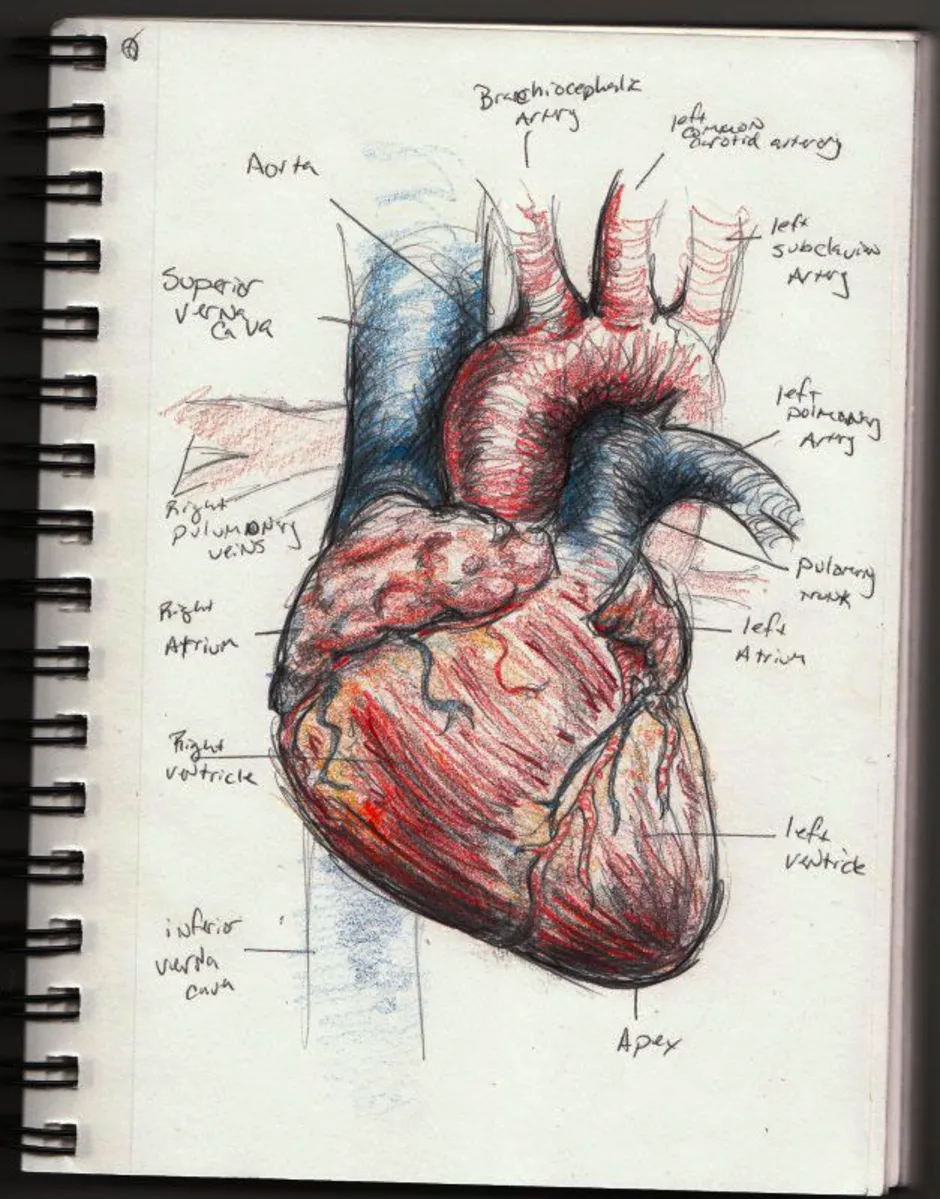 Brachiocephalic
Artery
left
common
carotid artery
Aorta
left
subclavian
Artery
Superior
Verna
Cava
left
pulmonary
Artery
Right
pulumonary
veins
pulmonary
trunk
Right
Atrium
left
Atrium
Right
ventricle
left
ventricle
inferior
verna
cava
Apex